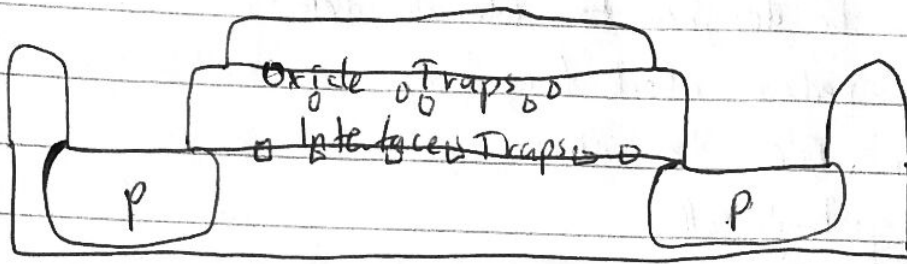 Oxide Traps
Interface Traps
p p